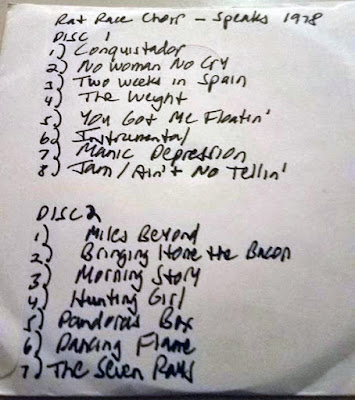 Rat Race Choir - Speaks 1978
DISC 1
1) Conquistador
2) No Woman No Cry
3) Two Weeks in Spain
4) The Weight
5) You Got Me Floatin'
6) Instrumental
7) Manic Depression
8) Jam/Ain't No Tellin'
DISC 2
1) Miles Beyond
2) Bringing Home the Bacon
3) Morning Story
4) Hunting Girl
5) Pandoras Box
6) Dancing Flame
7) The Seven